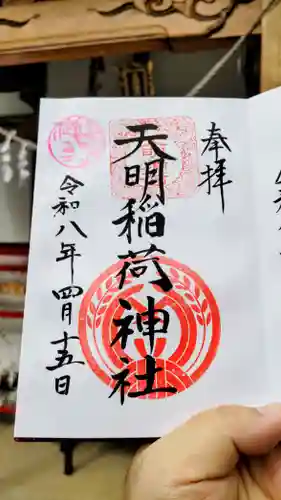 奉拝
天明稲荷神社
令和八年四月十五日